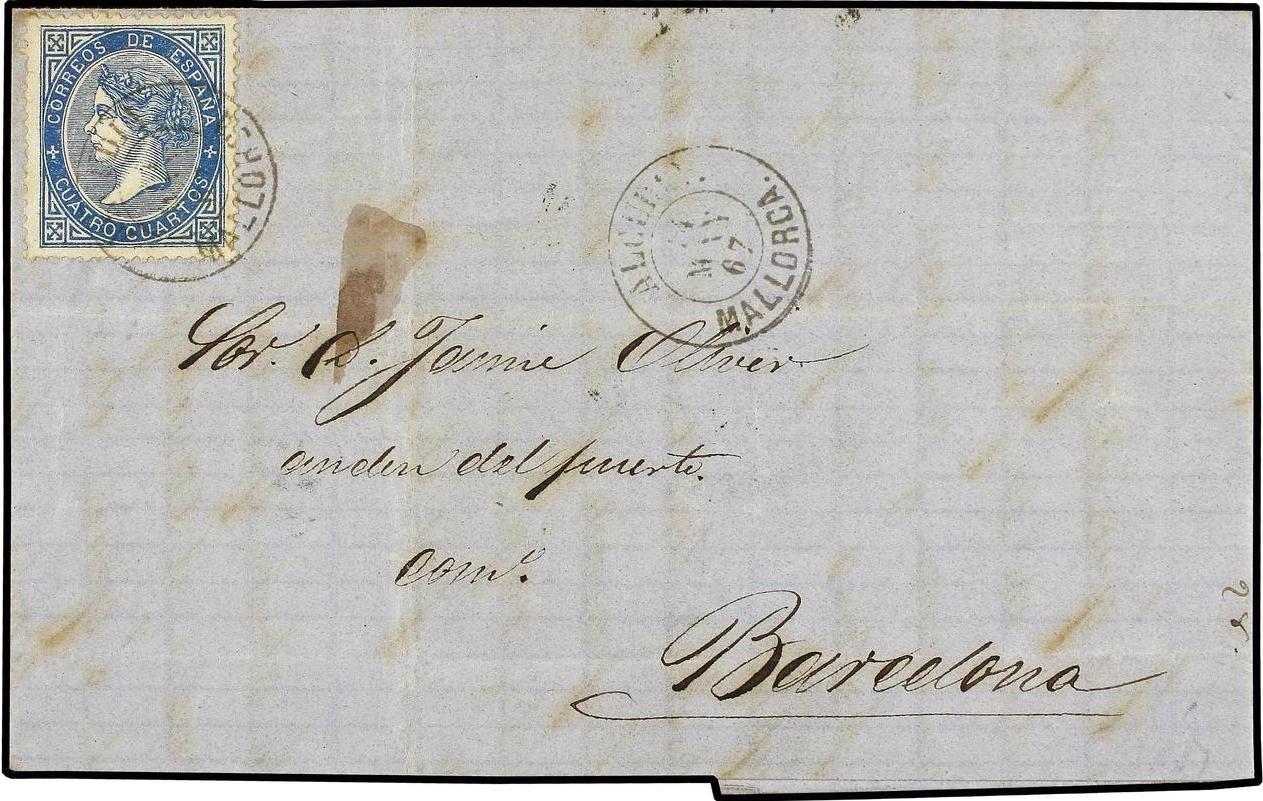 CORREOS DE ESPAÑA
CUATRO CUARTOS
MALLORCA
MALLORCA.
67
Sor. D. Jaime Oliver
anden del puerto.
come.
Barcelona